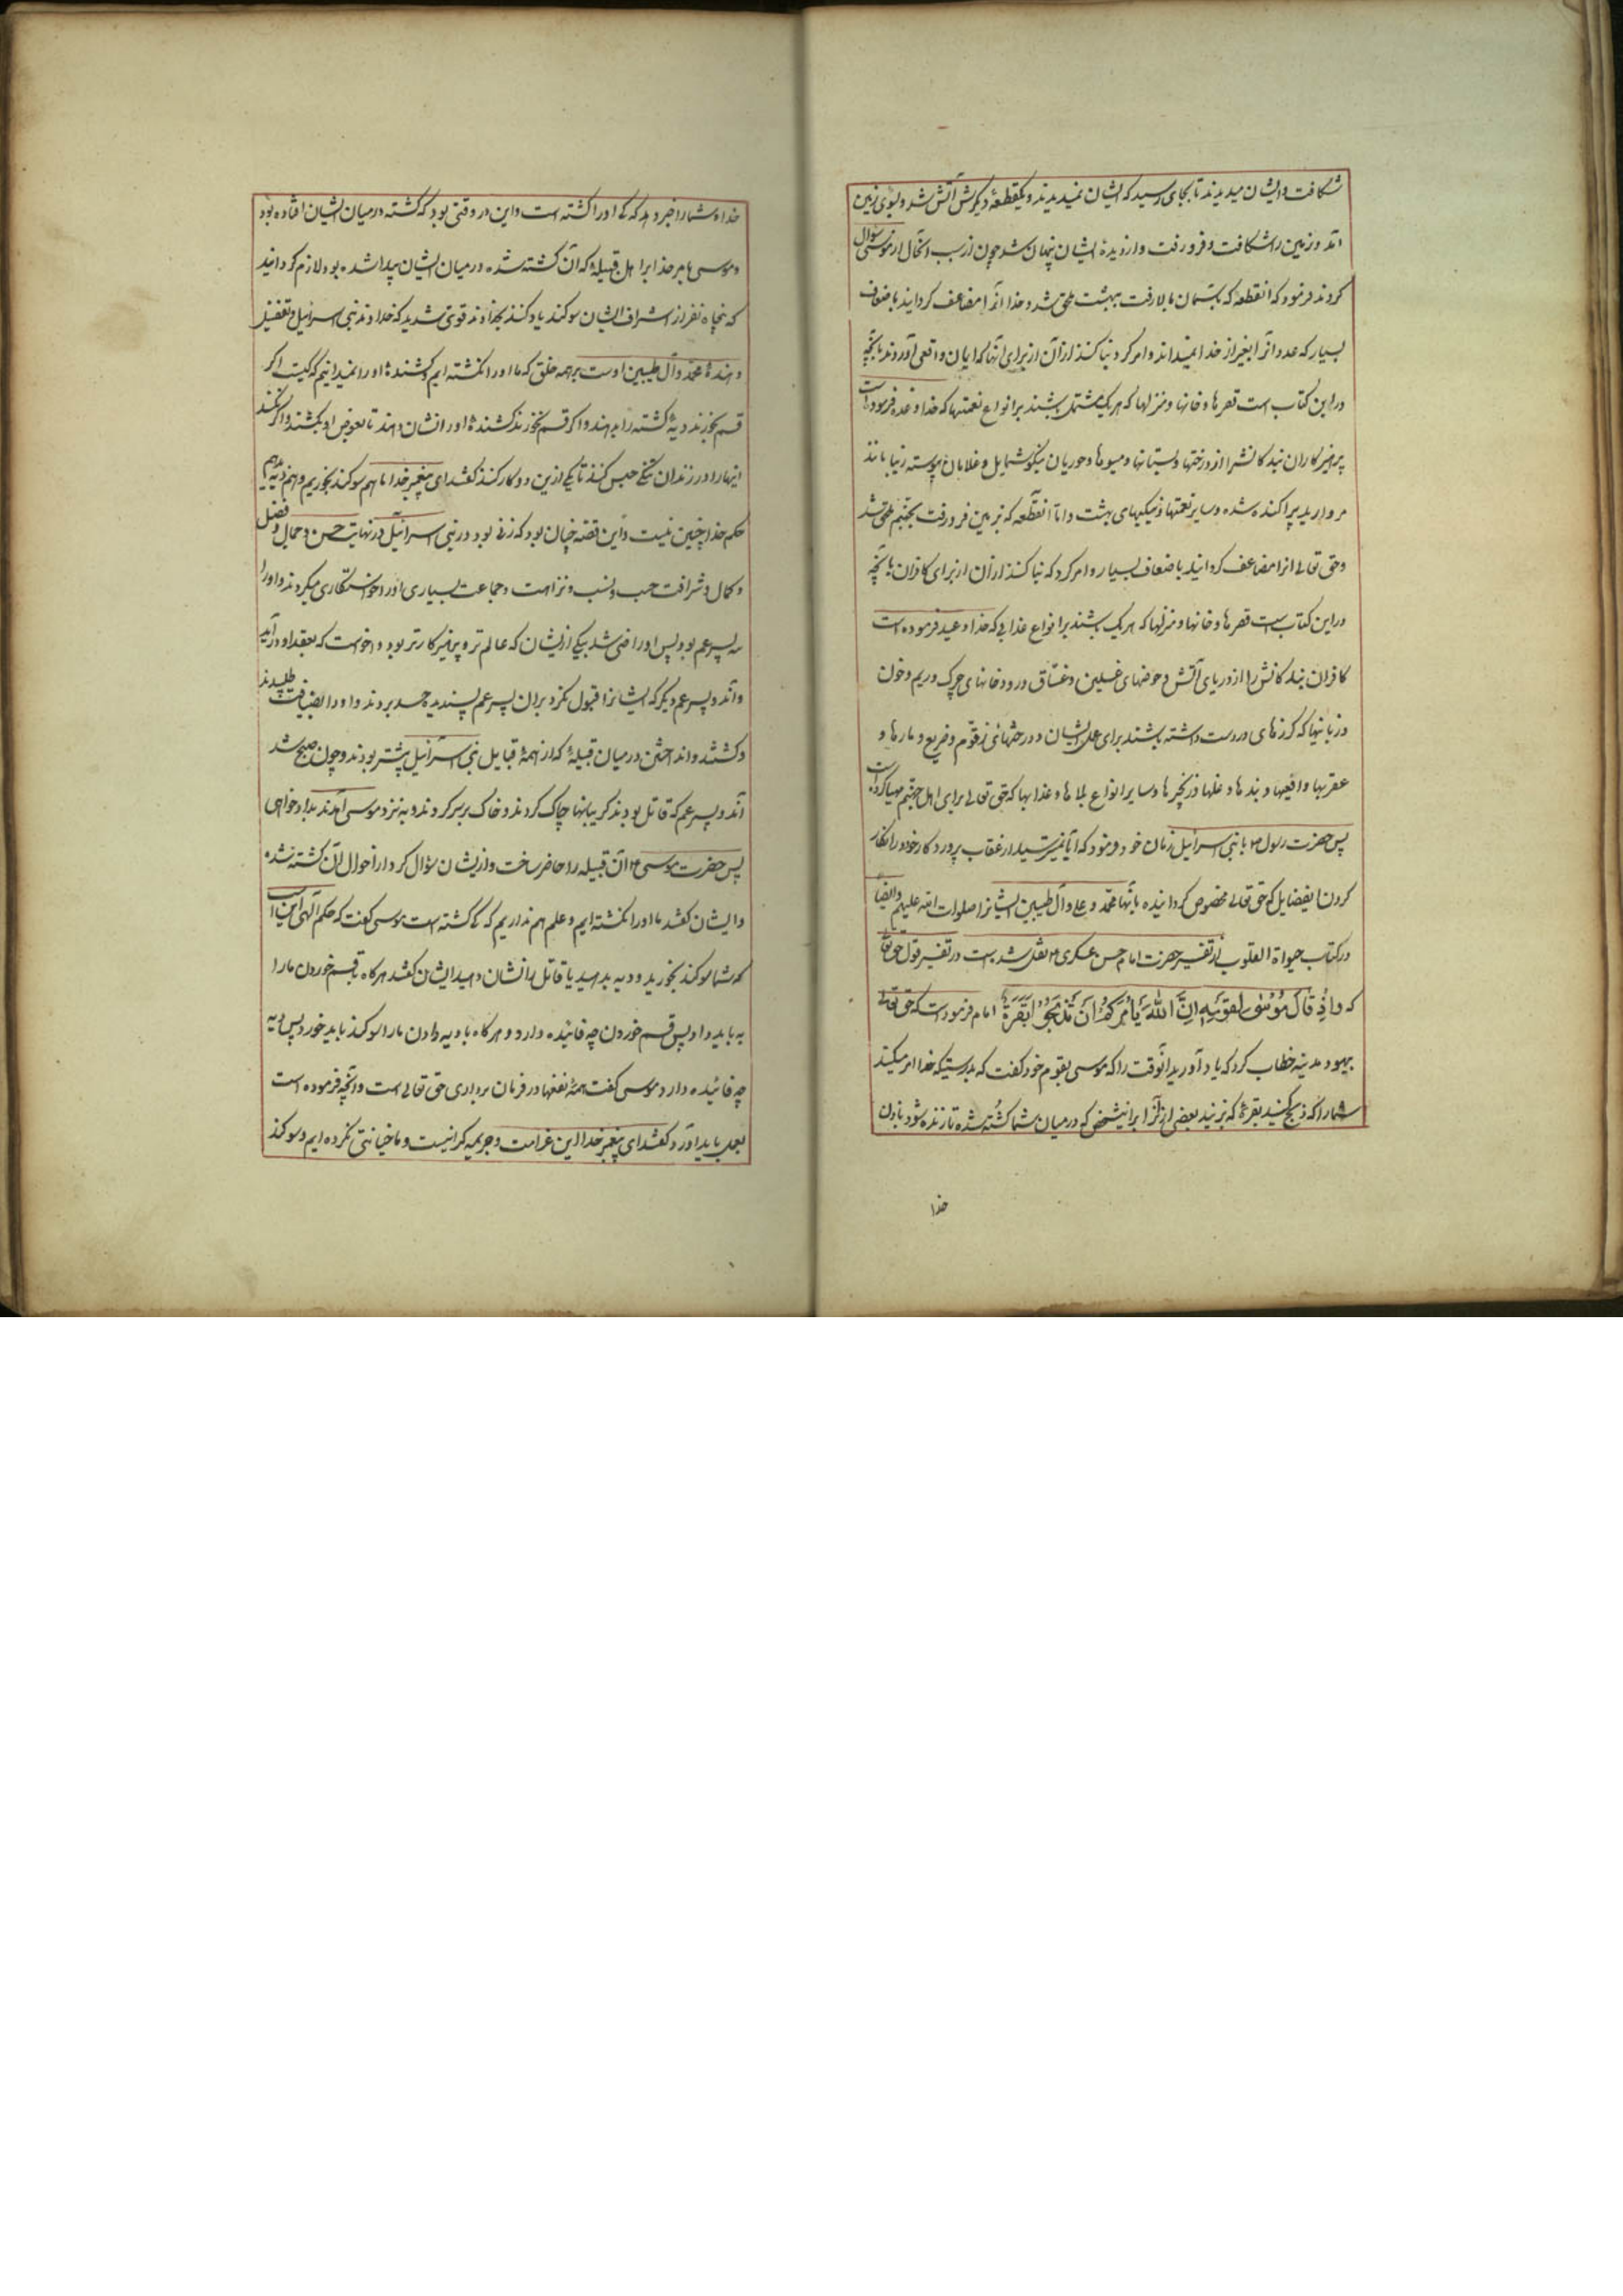 شکافت و ایشان میدیدند تا بجای رسید که ایشان نمیدیدند و یکقطعهٔ دیگرش آتش شد و بسوی زمین
آمد و زمین را شکافت و فرو رفت و از دیدهٔ ایشان پنهان شد چون از سبب آنحال از موسی سؤال
کردند فرمود که آنقطعه که بآسمان بالا رفت ببهشت ملحق شد و خدا آنرا مضاعف گردانید باضعاف
بسیار که عدد آنرا بغیر از خدا نمیداند و امر کرد بنا کنند از آن از برای آنها که ایمان واقعی آوردند بآنچه
در این کتاب است قصرها و خانها و منزلها که هر یک مشتمل باشند بر انواع نعمتها که خدا وعده فرموده است
پرهیزکاران بندکانشرا از درختها و بستانها و میوها و حوریان نیکو شمایل و غلامان پیوسته زیبا مانند
مروارید پراکنده شده و سایر نعمتها و نیکیهای بهشت و اما آنقطعه که بزمین فرو رفت بجهنم ملحق شد
و حق تعالی آنرا مضاعف گردانید باضعاف بسیار و امر کرد که بنا کنند از آن از برای کافران بآنچه
در این کتاب است قصرها و خانها و منزلها که هر یک باشند بر انواع عذابی که خدا وعید فرموده است
کافران بندکانش را از دریای آتش و حوضهای غسلین و غساق و رودخانهای چرک و ریم و خون
و زبانیها که گرزهای در دست داشته باشند برای عذاب ایشان و درختهای زقوم و ضریع و مارها و
عقربها و افعیها و بندها و غلها و زنجیرها و سایر انواع بلاها و عذابها که حق تعالی برای اهل جهنم مهیا کرده است
پس حضرت رسول ص با بنی اسرائیل زمان خود فرمود که آیا نمیترسید از عقاب پروردکار خود در انکار
کردن این فضایل که حق تعالی مخصوص گردانیده بآنها محمد و علی و آل طیبین ایشانرا صلوات الله علیهم و ایضاً
در کتاب حیوة القلوب از تفسیر حضرت امام حسن عسکری ع نقل شده است در تفسیر قول حق تعالی
که وَاِذْ قَالَ مُوسٰی لِقَوْمِهِ اِنَّ اللّٰهَ یَأْمُرُکُمْ اَنْ تَذْبَحُوا بَقَرَةً امام فرموده است که حق تعالی
بیهود مدینه خطاب کرد که یاد آورید آنوقت را که موسی بقوم خود گفت که بدرستیکه خدا امر میکند
شما را که ذبح کنید بقرهٔ که بزنید بعضی از آنرا بر این شخص که در میان شما کشته شده تا زنده شود باذن
خدا
خدا و شما را خبر دهد که کی او را کشته است و این در وقتی بود که کشته در میان ایشان افتاده بود
و موسی بامر خدا بر اهل قبیلهٔ که آن کشته شده در میان ایشان پیدا شده بود لازم گردانید
که پنجاه نفر از اشراف ایشان سوکند یاد کنند بخداوند قوی شدید که خداوند بنی اسرائیل و تفضیل
دهندهٔ محمد و آل طیبین اوست بر همه خلق که ما او را نکشته ایم و کشندهٔ او را نمیدانیم که کیست اگر
قسم بخورند دیهٔ کشته را بدهند و اگر قسم نخورند کشندهٔ او را نشان دهند تا بعوض او بکشند و اگر نکنند
اینها را در زندان تنگی حبس کنند تا یکی از این دو کار کنند گفتند ای پیغمبر خدا ما هم سوکند بخوریم و هم دیه بدهیم
حکم خدا چنین نیست و این قصه چنان بود که زنی بود در بنی اسرائیل در نهایت حسن و جمال و فضل
و کمال و شرافت حسب و نسب و نزاهت و جماعت بسیاری او را خواستگاری میکردند و او را
سه پسر عم بود پس او راضی شد بیکی از ایشان که عالم تر و پرهیزکارتر بود و خواست که بعقد او در آید
و آندو پسر عم دیگر که ایشانرا قبول نکرد بر آن پسر عم پسندیده حسد بردند و او را بضیافت طلبیدند
و کشتند و انداختن در میان قبیلهٔ که از همهٔ قبایل بنی اسرائیل بیشتر بودند و چون صبح شد
آندو پسر عم که قاتل بودند گریبانها چاک کردند و خاک بر سر کردند و به نزد موسی آمدند بدادخواهی
پس حضرت موسی ع آن قبیله را حاضر ساخت و از ایشان سؤال کرد از احوال آن کشته شده
و ایشان گفتند ما او را نکشته ایم و علم هم نداریم که کی کشته است موسی گفت که حکم الهی این است
که شما سوکند بخورید و دیه بدهید یا قاتل را نشان دهید ایشان گفتند هرگاه با قسم خوردن ما را
دیه باید داد پس قسم خوردن چه فائیده دارد و هرگاه با دیه دادن ما را سوکند باید خورد پس دیه
چه فائیده دارد موسی گفت همهٔ نفعها در فرمان برداری حق تعالی است و آنچه فرموده است
بعمل باید آورد گفتند ای پیغمبر خدا این غرامت و جریمه گرانیست و ما خیانتی نکرده ایم و سوکند